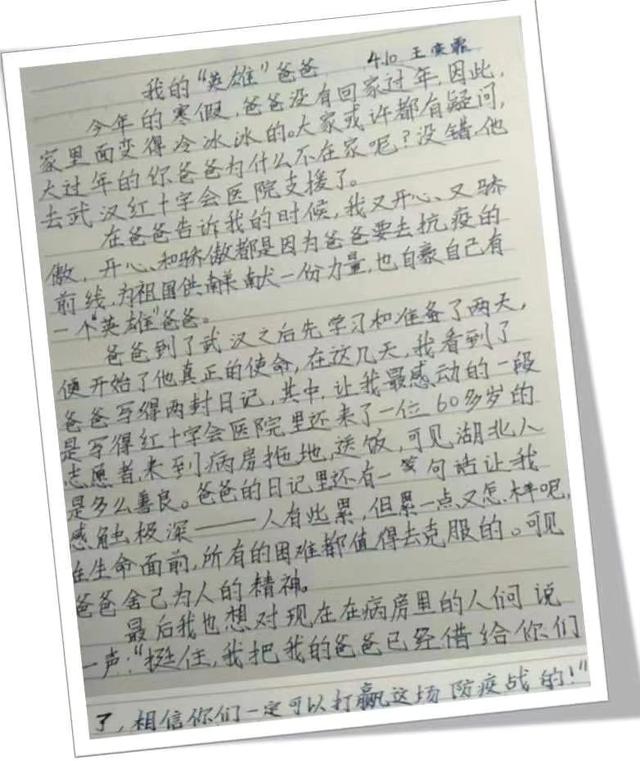 我的“英雄”爸爸 4.10 王奕霏
今年的寒假，爸爸没有回家过年，因此，
家里面变得冷冰冰的。大家或许都有疑问，
大过年的你爸爸为什么不在家呢？没错，他
去武汉红十字会医院支援了。
在爸爸告诉我的时候，我又开心、又骄
傲，开心、和骄傲都是因为爸爸要去抗疫的
前线，为祖国供献一份力量，也自豪自己有
一个“英雄”爸爸。
爸爸到了武汉之后先学习和准备了两天，
便开始了他真正的使命，在这几天，我看到了
爸爸写得两封日记，其中，让我最感动的一段
是写得红十字会医院里还来了一位60多岁的
志愿者，来到病房拖地，送饭，可见湖北人
是多么善良。爸爸的日记里还有一句话让我
感触极深——人有些累，但累一点又怎样呢，
在生命面前，所有的困难都值得去克服的。可见
爸爸舍己为人的精神。
最后我也想对现在在病房里的人们说
一声：“挺住，我把我的爸爸已经借给你们
了，相信你们一定可以打赢这场防疫战的！”